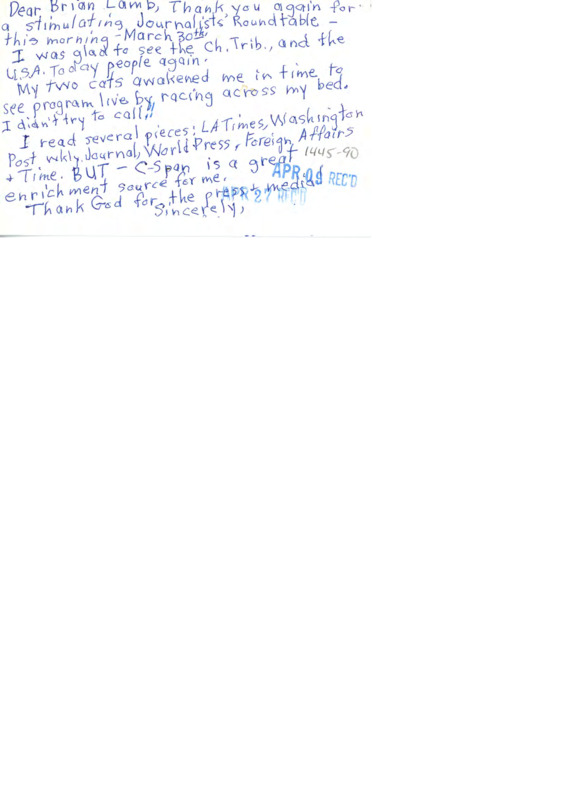 Dear Brian Lamb, Thank you again for
a stimulating Journalists' Roundtable –
this morning – March 30th.
I was glad to see the Ch. Trib., and the
U.S.A. Today people again.
My two cats awakened me in time to
see program live by racing across my bed.
I didn't try to call!!
I read several pieces: LA Times, Washington
Post wkly. Journal, World Press, Foreign Affairs
+ Time. BUT – C-Span is a great 1445-90
enrichment source for me. APR 09 REC'D
Thank God for the press + media APR 27 REC'D
Sincerely,